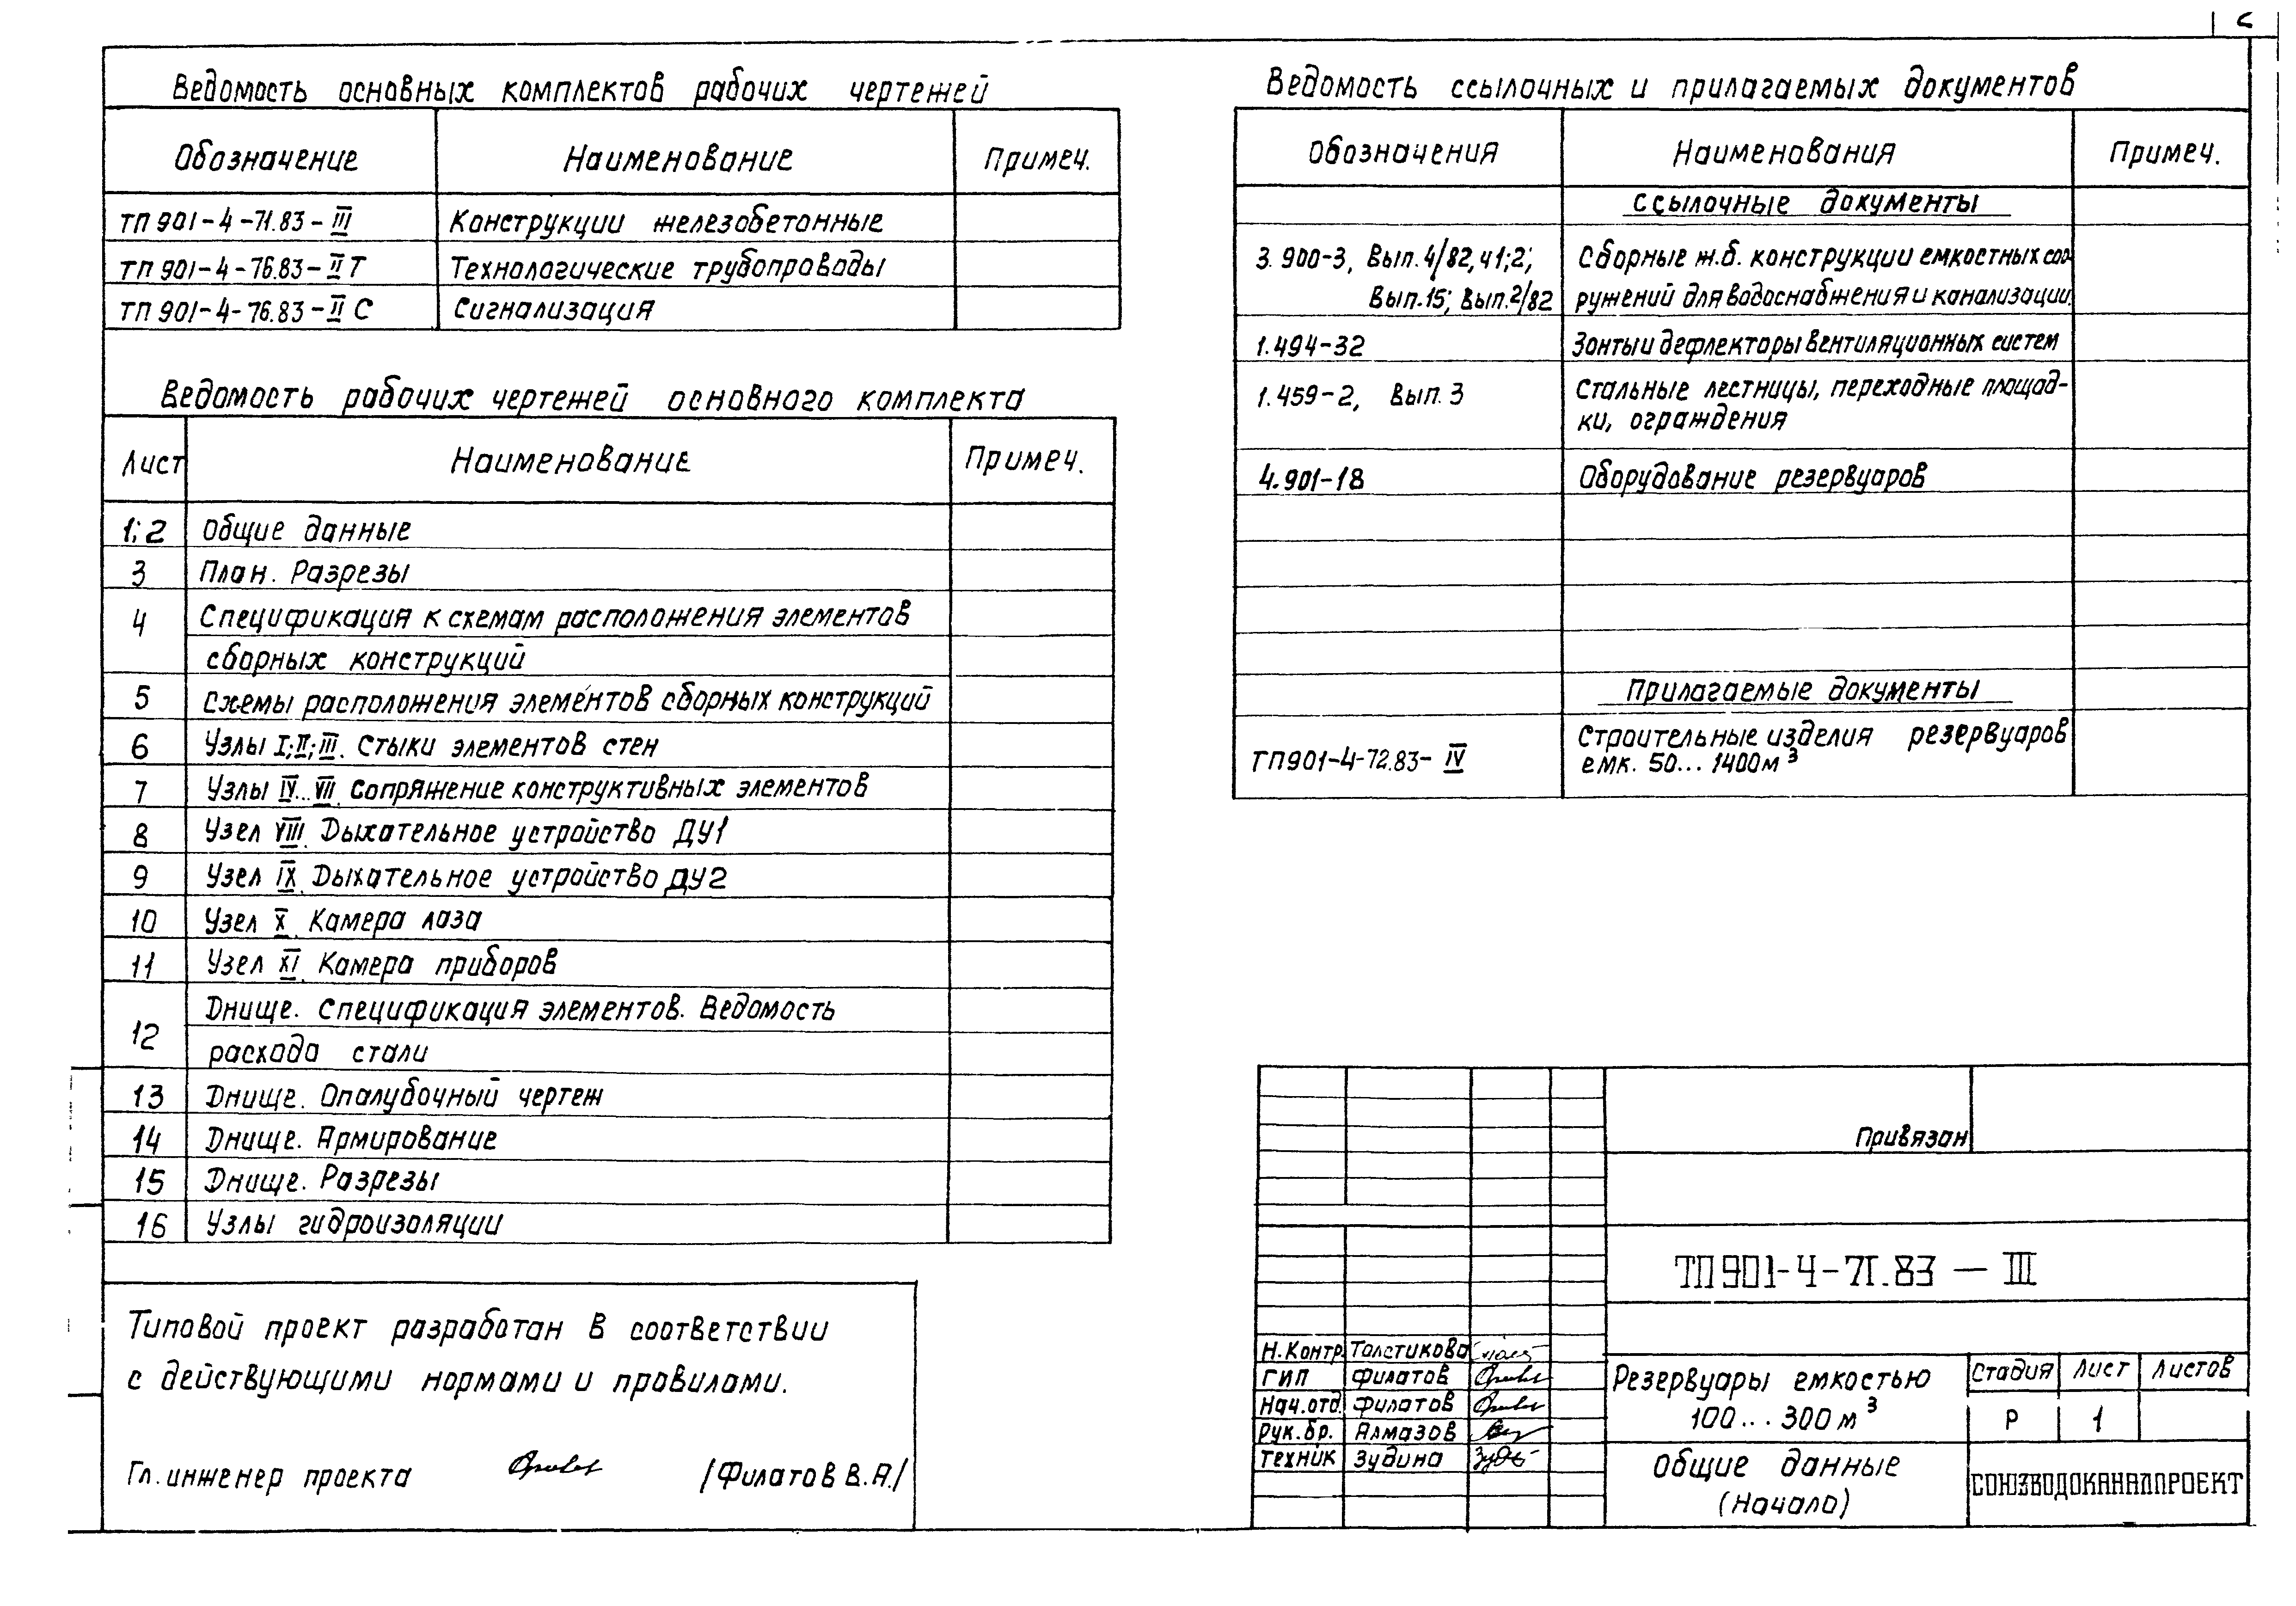 Ведомость основных комплектов рабочих чертежей
Обозначение Наименование Примеч.
ТП 901-4-71.83-III Конструкции железобетонные
ТП 901-4-76.83-II Т Технологические трубопроводы
ТП 901-4-76.83-II С Сигнализация
Ведомость рабочих чертежей основного комплекта
Лист Наименование Примеч.
1; 2 Общие данные
3 План. Разрезы
4 Спецификация к схемам расположения элементов
сборных конструкций
5 Схемы расположения элементов сборных конструкций
6 Узлы I; II; III. Стыки элементов стен
7 Узлы IV...VII. Сопряжение конструктивных элементов
8 Узел VIII. Дыхательное устройство ДУ1
9 Узел IX. Дыхательное устройство ДУ2
10 Узел X. Камера лаза
11 Узел XI. Камера приборов
12 Днище. Спецификация элементов. Ведомость
расхода стали
13 Днище. Опалубочный чертеж
14 Днище. Армирование
15 Днище. Разрезы
16 Узлы гидроизоляции
Типовой проект разработан в соответствии
с действующими нормами и правилами.
Гл. инженер проекта /Филатов В.А./
Ведомость ссылочных и прилагаемых документов
Обозначения Наименования Примеч.
Ссылочные документы
3.900-3, Вып. 4/82, ч1; 2; Сборные ж.б. конструкции емкостных соо-
Вып. 15; Вып. 2/82 ружений для водоснабжения и канализации.
1.494-32 Зонты и дефлекторы вентиляционных систем
1.459-2, Вып. 3 Стальные лестницы, переходные площад-
ки, ограждения
4.901-18 Оборудование резервуаров
Прилагаемые документы
ТП901-4-72.83-IV Строительные изделия резервуаров
емк. 50... 1400 м³
Привязан
ТП 901-4-71.83 — III
Н.Контр. Толстикова
ГИП Филатов
Нач.отд. Филатов
Рук.бр. Алмазов
Техник Зудина
Резервуары емкостью
100... 300 м³
Стадия Лист Листов
Р 1
Общие данные
(Начало)
СОЮЗВОДОКАНАЛПРОЕКТ